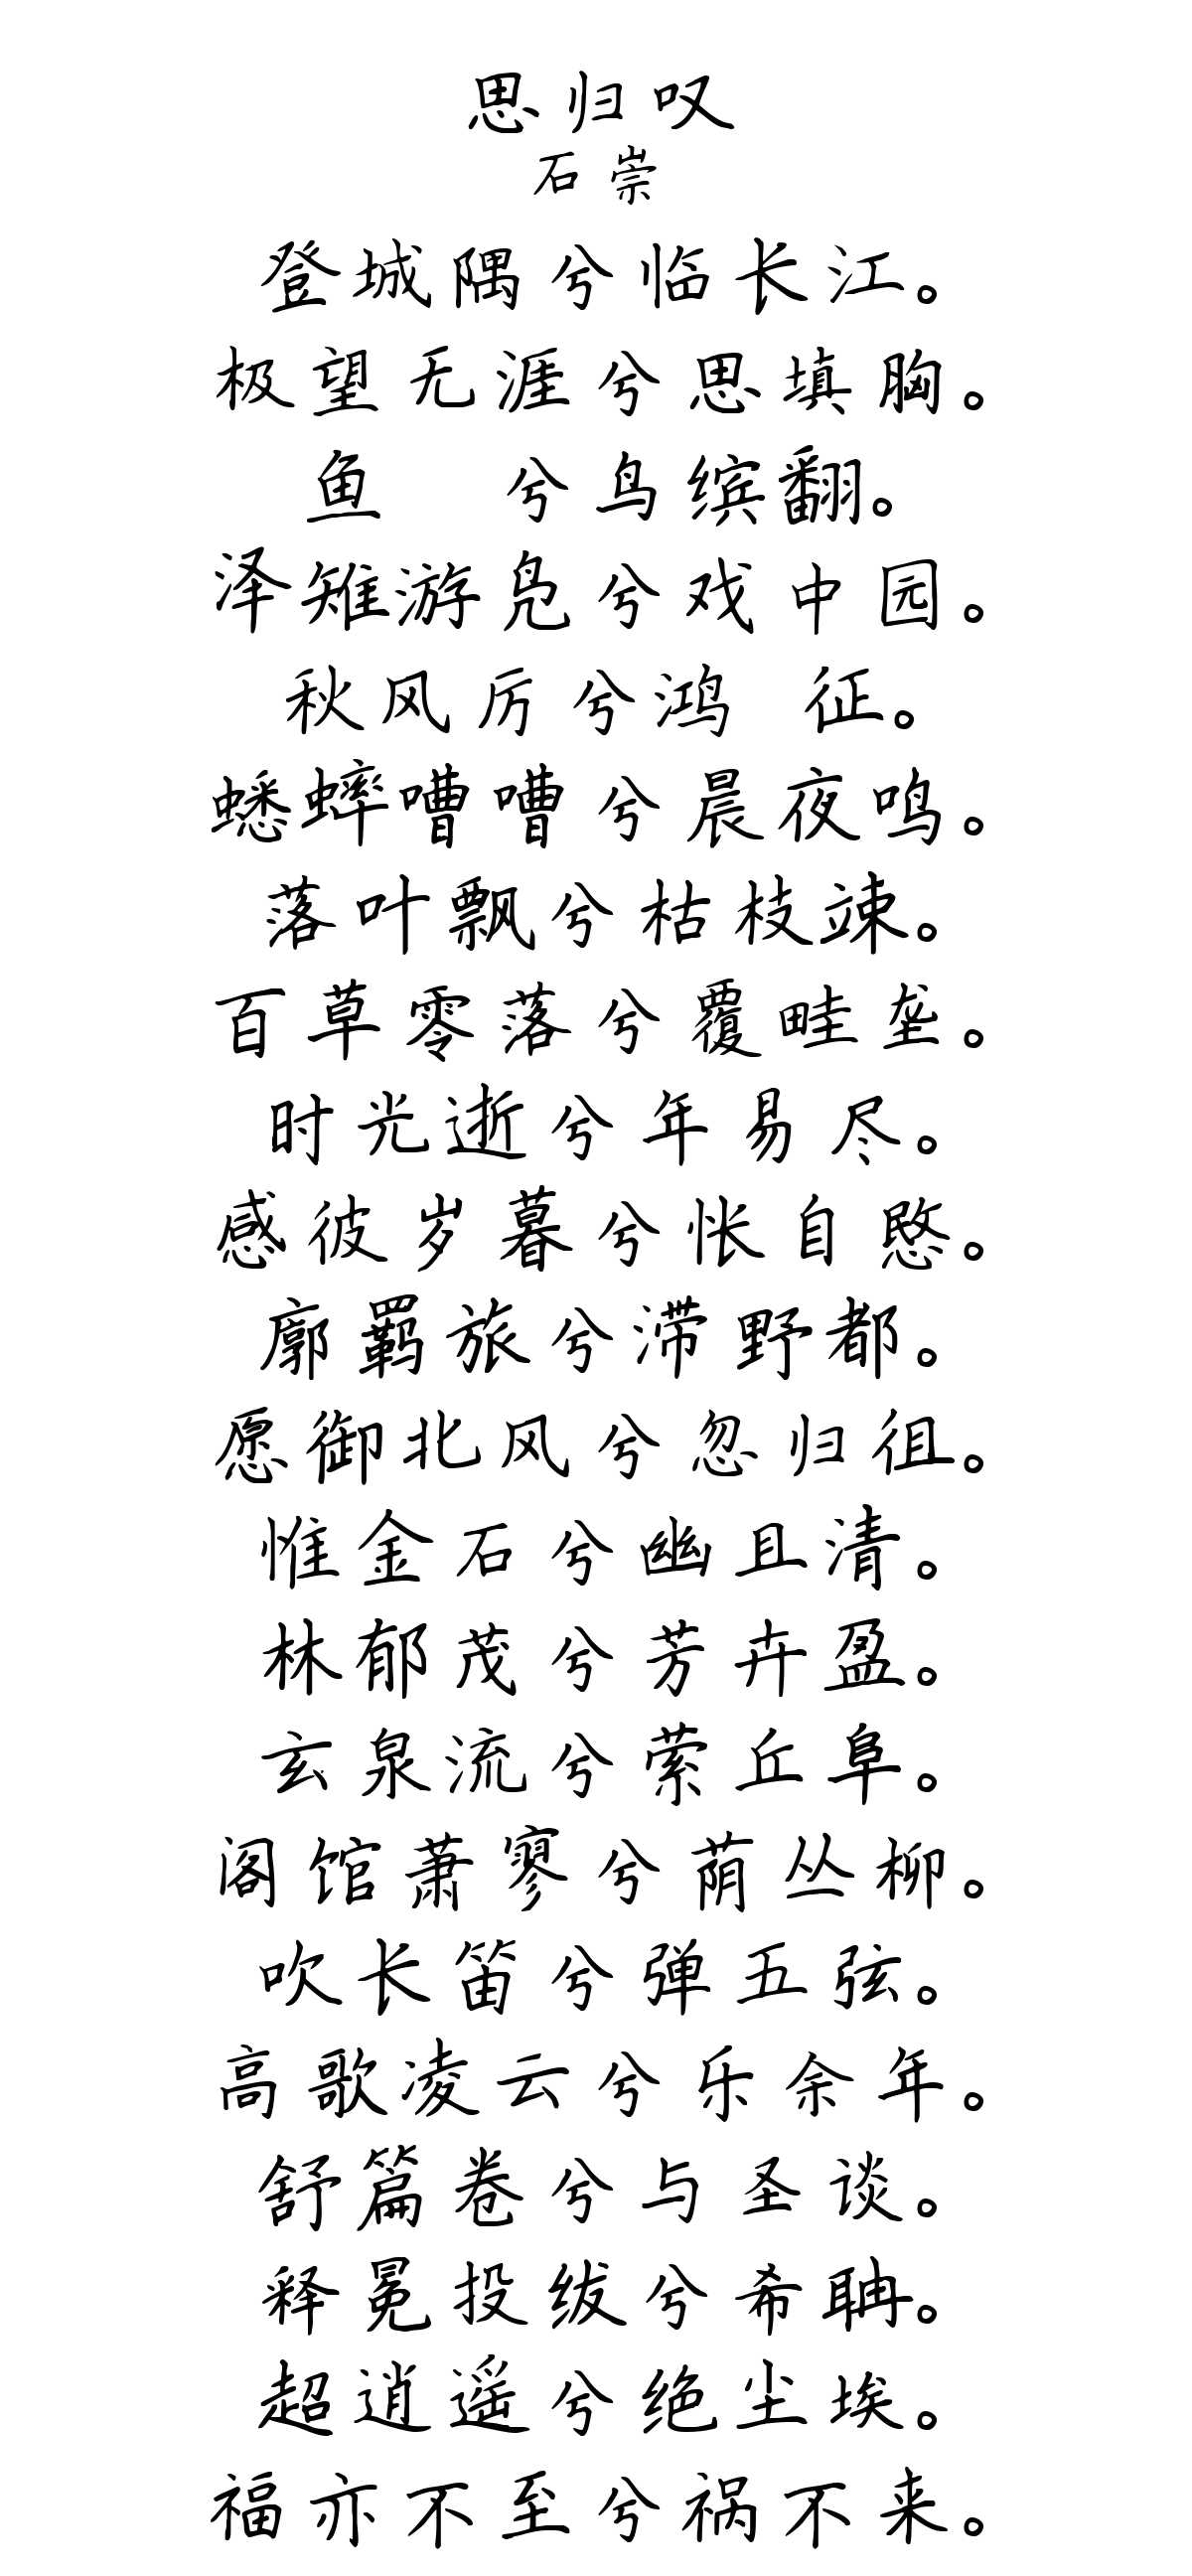 思归叹
石崇
登城隅兮临长江。
极望无涯兮思填胸。
鱼 兮鸟缤翻。
泽雉游凫兮戏中园。
秋风厉兮鸿 征。
蟋蟀嘈嘈兮晨夜鸣。
落叶飘兮枯枝竦。
百草零落兮覆畦垄。
时光逝兮年易尽。
感彼岁暮兮怅自愍。
廓羁旅兮滞野都。
愿御北风兮忽归徂。
惟金石兮幽且清。
林郁茂兮芳卉盈。
玄泉流兮萦丘阜。
阁馆萧寥兮荫丛柳。
吹长笛兮弹五弦。
高歌凌云兮乐余年。
舒篇卷兮与圣谈。
释冕投绂兮希聃。
超逍遥兮绝尘埃。
福亦不至兮祸不来。